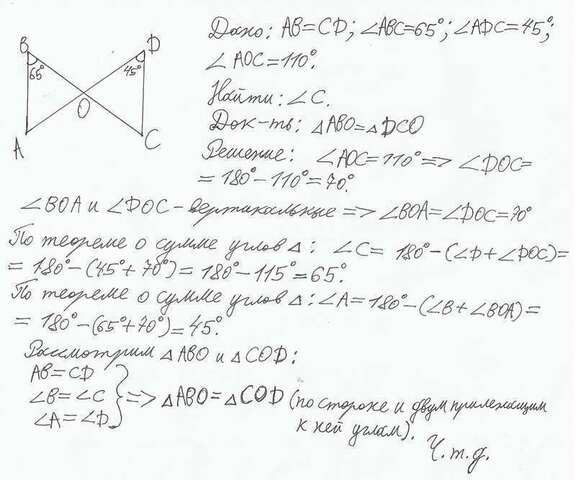 B
D
65°
45°
O
A
C
Дано: AB=CD; ∠ABC=65°; ∠ADC=45°;
∠AOC=110°.
Найти: ∠C.
Док-ть: △ABO=△DCO
Решение: ∠AOC=110° => ∠DOC=
=180°-110°=70°.
∠BOA и ∠DOC-вертикальные => ∠BOA=∠DOC=70°
По теореме о сумме углов △: ∠C= 180°-(∠D+∠DOC)=
=180°-(45°+70°)=180°-115°=65°.
По теореме о сумме углов △: ∠A=180°-(∠B+∠BOA)=
=180°-(65°+70°)=45°.
Рассмотрим △ABO и △COD:
AB=CD
∠B=∠C
∠A=∠D
} => △ABO=△COD (по стороне и двум прилежащим
к ней углам).
Ч.т.д.